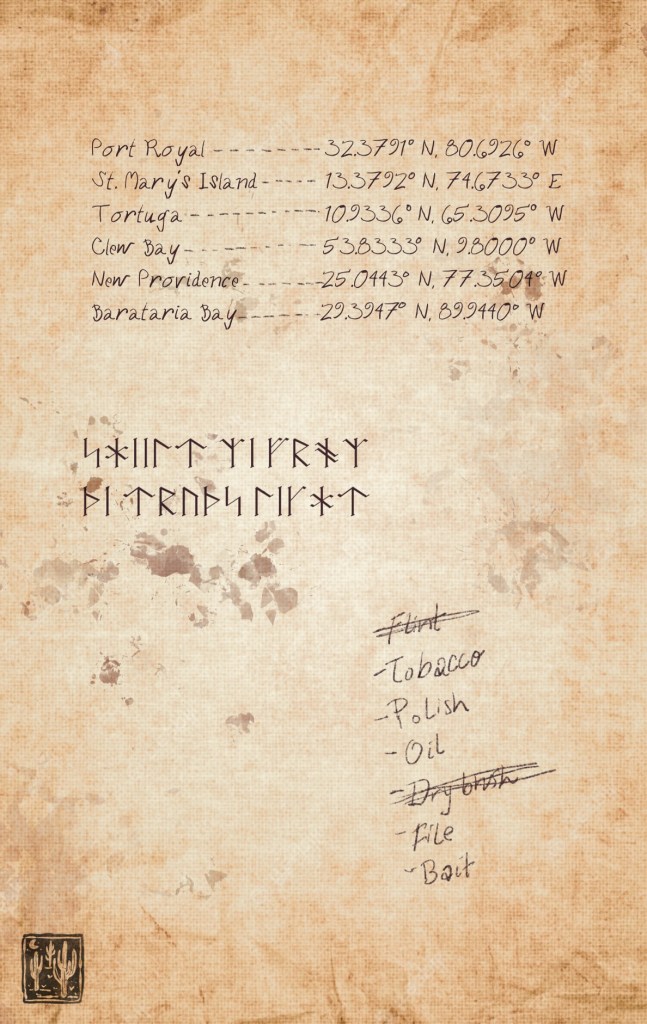 Port Royal --------32.3791° N, 80.6926° W
St. Mary's Island-----13.3792° N, 74.6733° E
Tortuga -----------10.9336° N, 65.3095° W
Clew Bay -----------53.8333° N, 9.8000° W
New Providence-------25.0443° N, 77.3504° W
Barataria Bay-------29.3947° N, 89.9440° W
ᛋᚼᛁᛁᛚᛏ ᛘᛁ ᚠᚱᚬᛘ
ᚦᛁ ᛏᚱᚢᚦᛋ ᛚᛁᚴᚼᛏ
-Flint
-Tobacco
-Polish
-Oil
-Drybrush
-File
-Bait